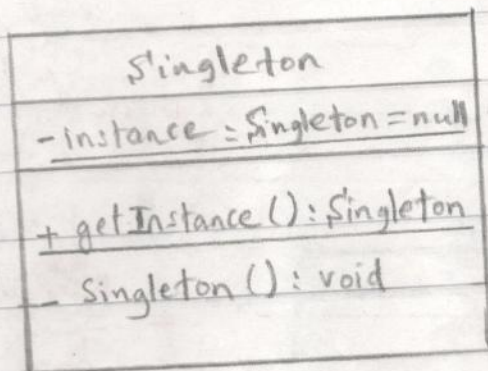 Singleton
- instance : Singleton = null
+ getInstance () : Singleton
- Singleton () : void